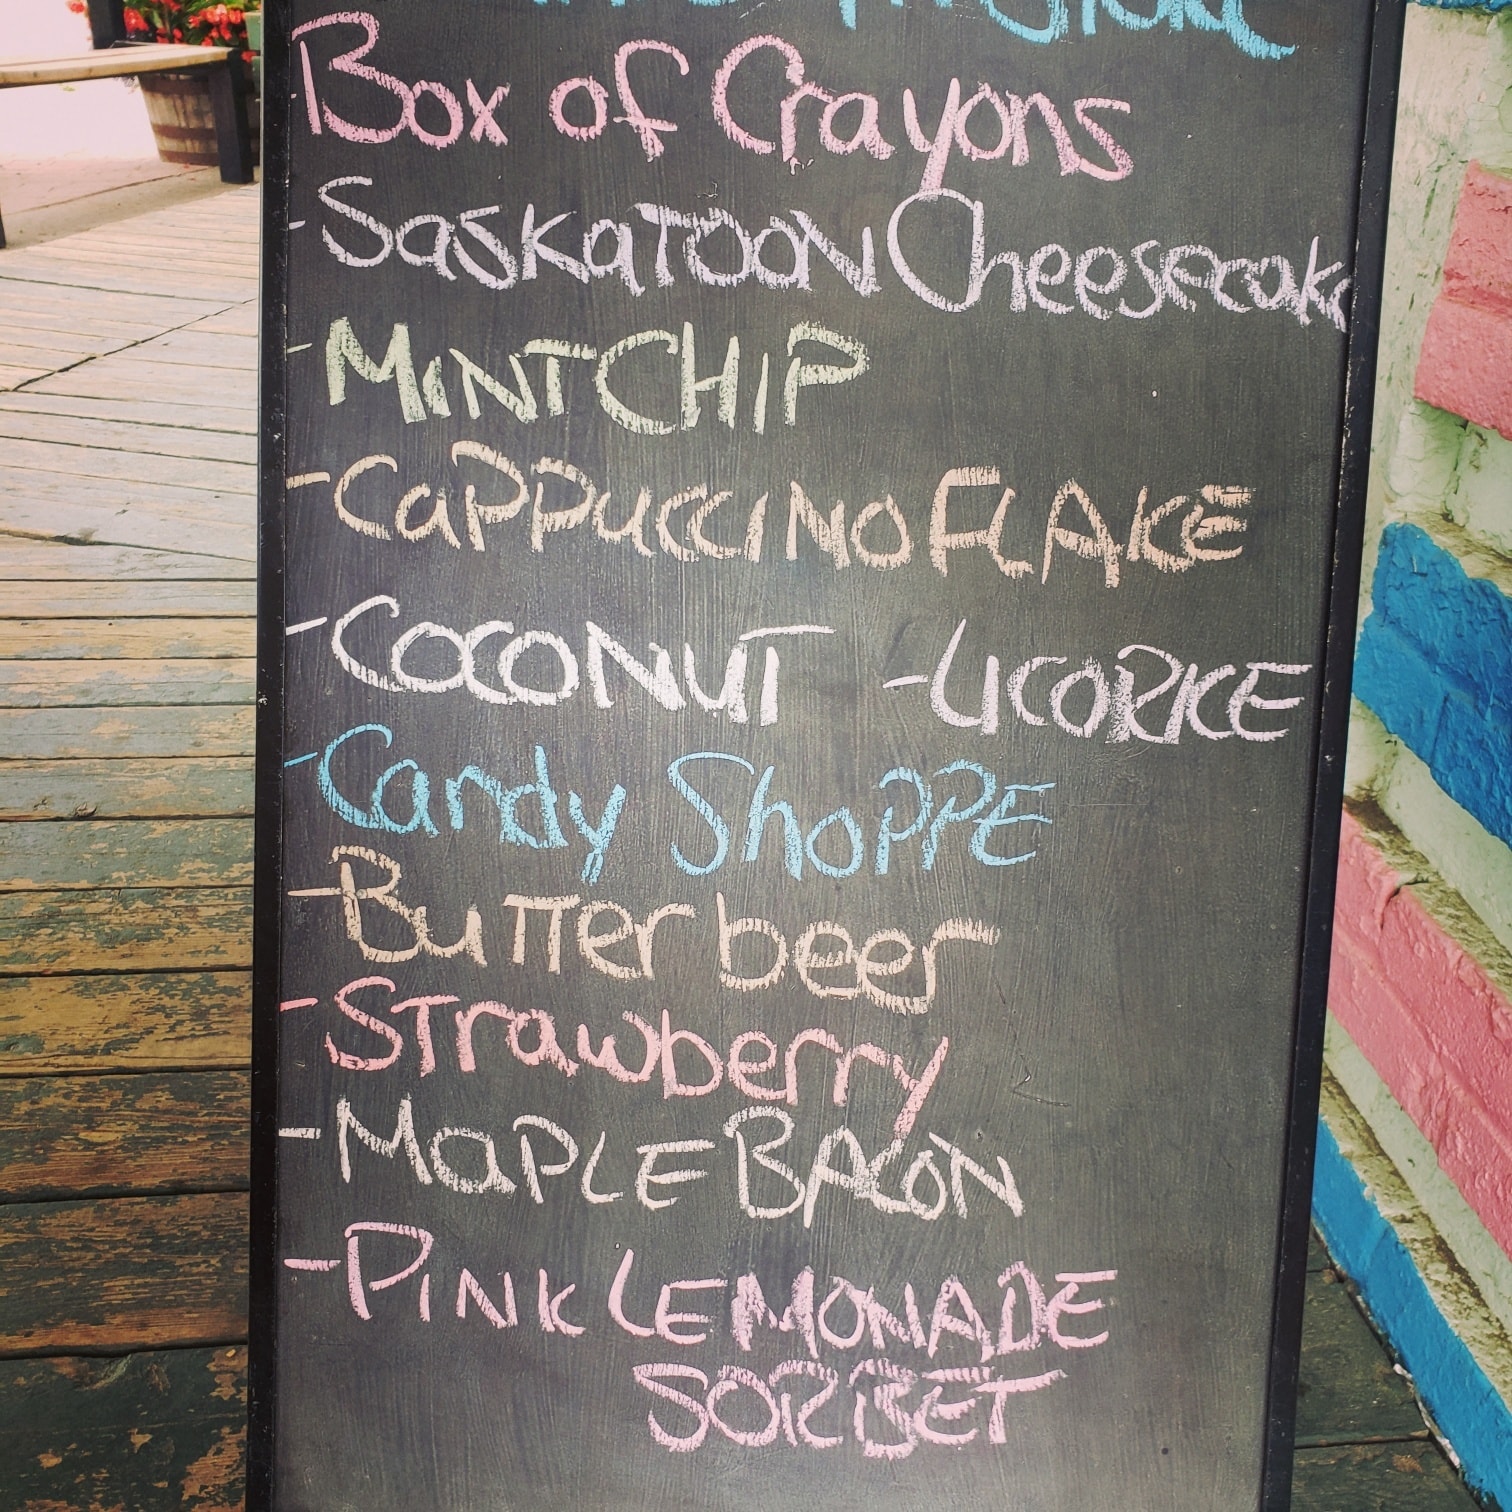 -Box of Crayons
-Saskatoon Cheesecake
-MINT CHIP
-Cappuccino FLAKE
-COCONUT -LICORICE
-Candy Shoppe
-Butterbeer
-Strawberry
-Maple Bacon
-PINK LEMONADE
SORBET